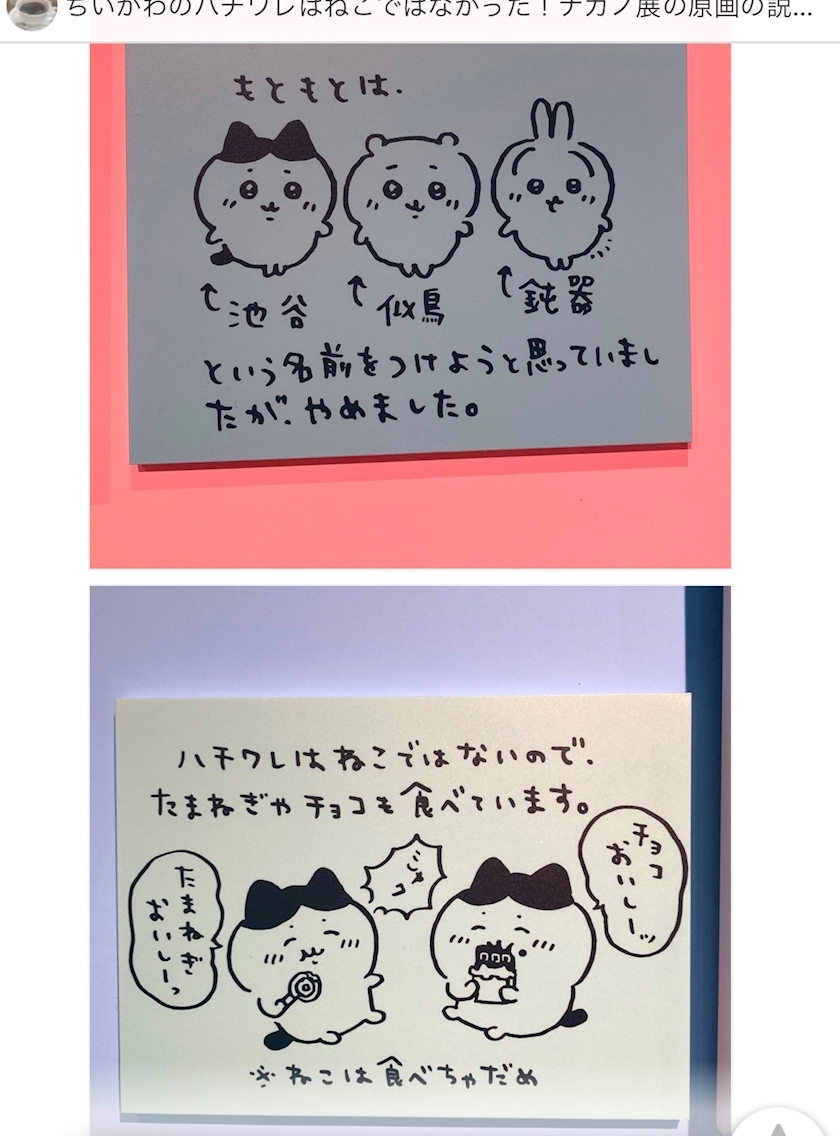 ちいかわのハチワレはねこではなかった！ナガノ展の原画の説...
もともとは、
↑池谷
↑似鳥
↑鈍器
という名前をつけようと思っていまし
たが、やめました。
ハチワレはねこではないので、
たまねぎやチョコも食べています。
たまねぎ
おいしーっ
チョコ
おいしーッ
※ねこは食べちゃだめ